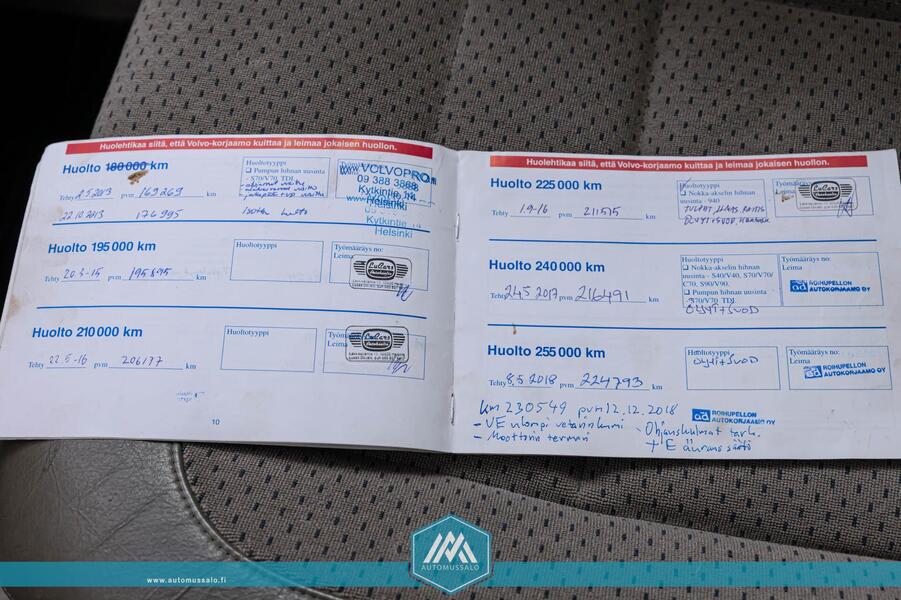 Huolehtikaa siitä, että Volvo-korjaamo kuittaa ja leimaa jokaisen huollon.
Huolto 180 000 km
Huoltotyyppi
Pumpun hihnan uusinta
- S70/V70, TDI
Tehty 2.5.2013 pvm 169269 km
22.10.2013 176995
VOLVOPRO
09 388 3868
Kytkintie
Helsinki
Kytkintie
Helsinki
Huolto 195 000 km
Huoltotyyppi
Työmääräys no:
Leima
Tehty 20.3-15 pvm 195895 km
LuCars
Huolto 210 000 km
Huoltotyyppi
Leima
Tehty 22.5-16 pvm 206177 km
LuCars
10
Huolehtikaa siitä, että Volvo-korjaamo kuittaa ja leimaa jokaisen huollon.
Huolto 225 000 km
Huoltotyyppi
Nokka-akselin hihnan
uusinta - 940
Leima
LuCars
Tehty 1.9-16 pvm 211515 km
Huolto 240 000 km
Huoltotyyppi
Nokka-akselin hihnan
uusinta - S40/V40, S70/V70/
C70, S90/V90.
Pumpun hihnan uusinta
S70/V70 TDI
ÖLJYT+SUOD
Työmääräys no:
Leima
ad ROIHUPELLON
AUTOKORJAAMO OY
Tehty 24.5 2017 pvm 216491 km
Huolto 255 000 km
Huoltotyyppi
ÖLJYT+SUOD
Työmääräys no:
Leima
ad ROIHUPELLON
AUTOKORJAAMO OY
Tehty 8.5 2018 pvm 224793 km
km 230549 pvm 12.12.2018
ad ROIHUPELLON
AUTOKORJAAMO OY
- VE ulompi vetonivelkumi - Ohjauskulmat tark.
- Moottorin termari + E auraussäätö
AUTOMUSSALO
www.automussalo.fi